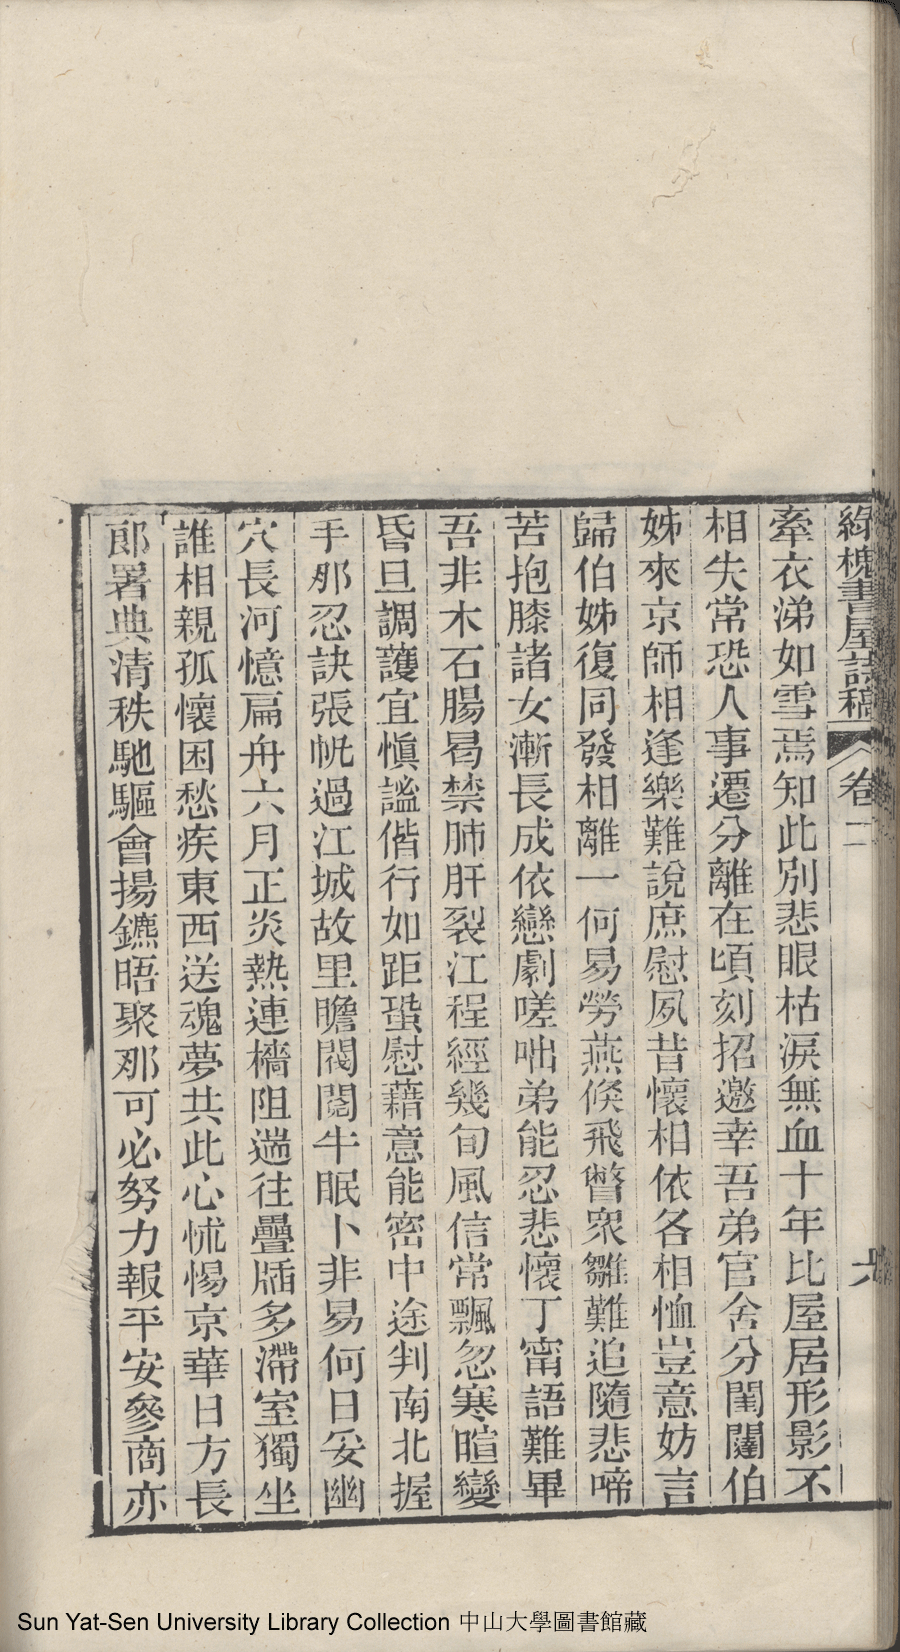 綠槐書屋詩稿 卷二 六
牽衣涕如雪焉知此別悲眼枯淚無血十年比屋居形影不
相失常恐人事遷分離在頃刻招邀幸吾弟官舍分閨闥伯
姊來京師相逢樂難說庶慰夙昔懷相依各相恤豈意妨言
歸伯姊復同發相離一何易勞燕倏飛瞥眾雛難追隨悲啼
苦抱膝諸女漸長成依戀劇嗟咄弟能忍悲懷丁甯語難畢
吾非木石腸曷禁肺肝裂江程經幾旬風信常飄忽寒暄變
昏旦調護宜愼謐偕行如距蛩慰藉意能密中途判南北握
手那忍訣張帆過江城故里瞻閥閱牛眠卜非易何日妥幽
穴長河憶扁舟六月正炎熱連檣阻遄往疊牐多滯窒獨坐
誰相親孤懷困愁疾東西送魂夢共此心怵惕京華日方長
郎署典清秩馳驅會揚鑣晤聚那可必努力報平安參商亦
Sun Yat-Sen University Library Collection 中山大學圖書館藏